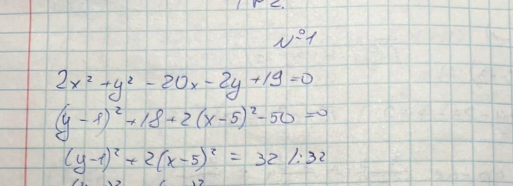 №1
2x² + y² - 20x - 2y + 19 = 0
(y - 1)² + 18 + 2(x - 5)² - 50 = 0
(y - 1)² + 2(x - 5)² = 32 /: 32